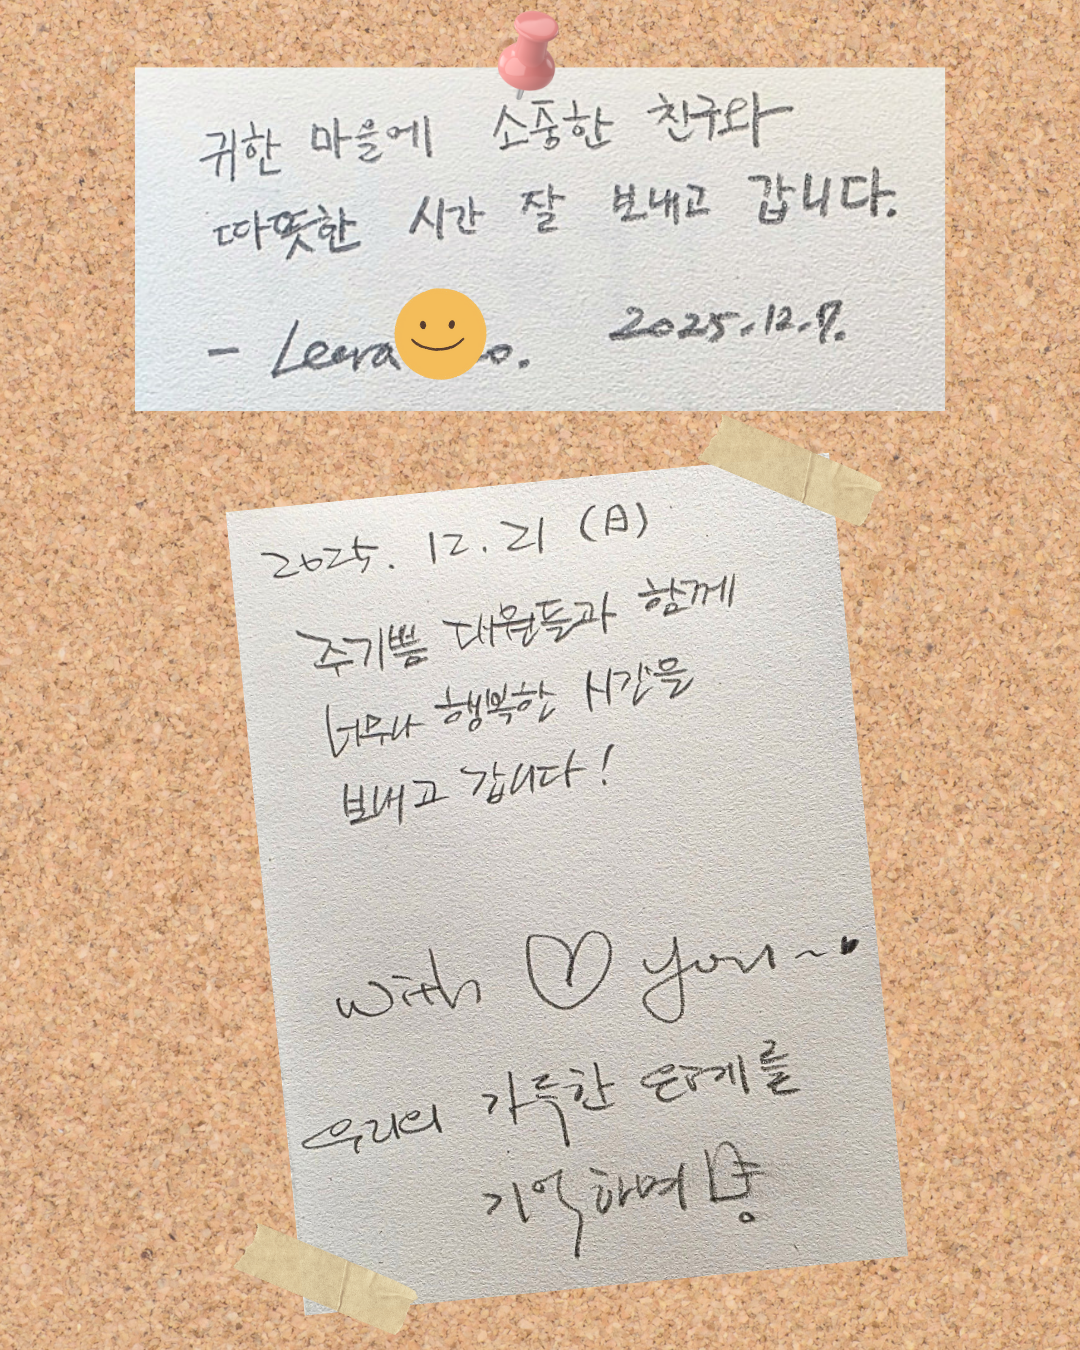 귀한 마을에 소풍한 친구와
따뜻한 시간 잘 보내고 갑니다.
2025.12.7.
2025. 12. 21 (日)
주기쁨 대원들과 함께
너무나 행복한 시간을
보내고 갑니다!
with ♡ you~
우리의 가득한 은혜를
기억하며